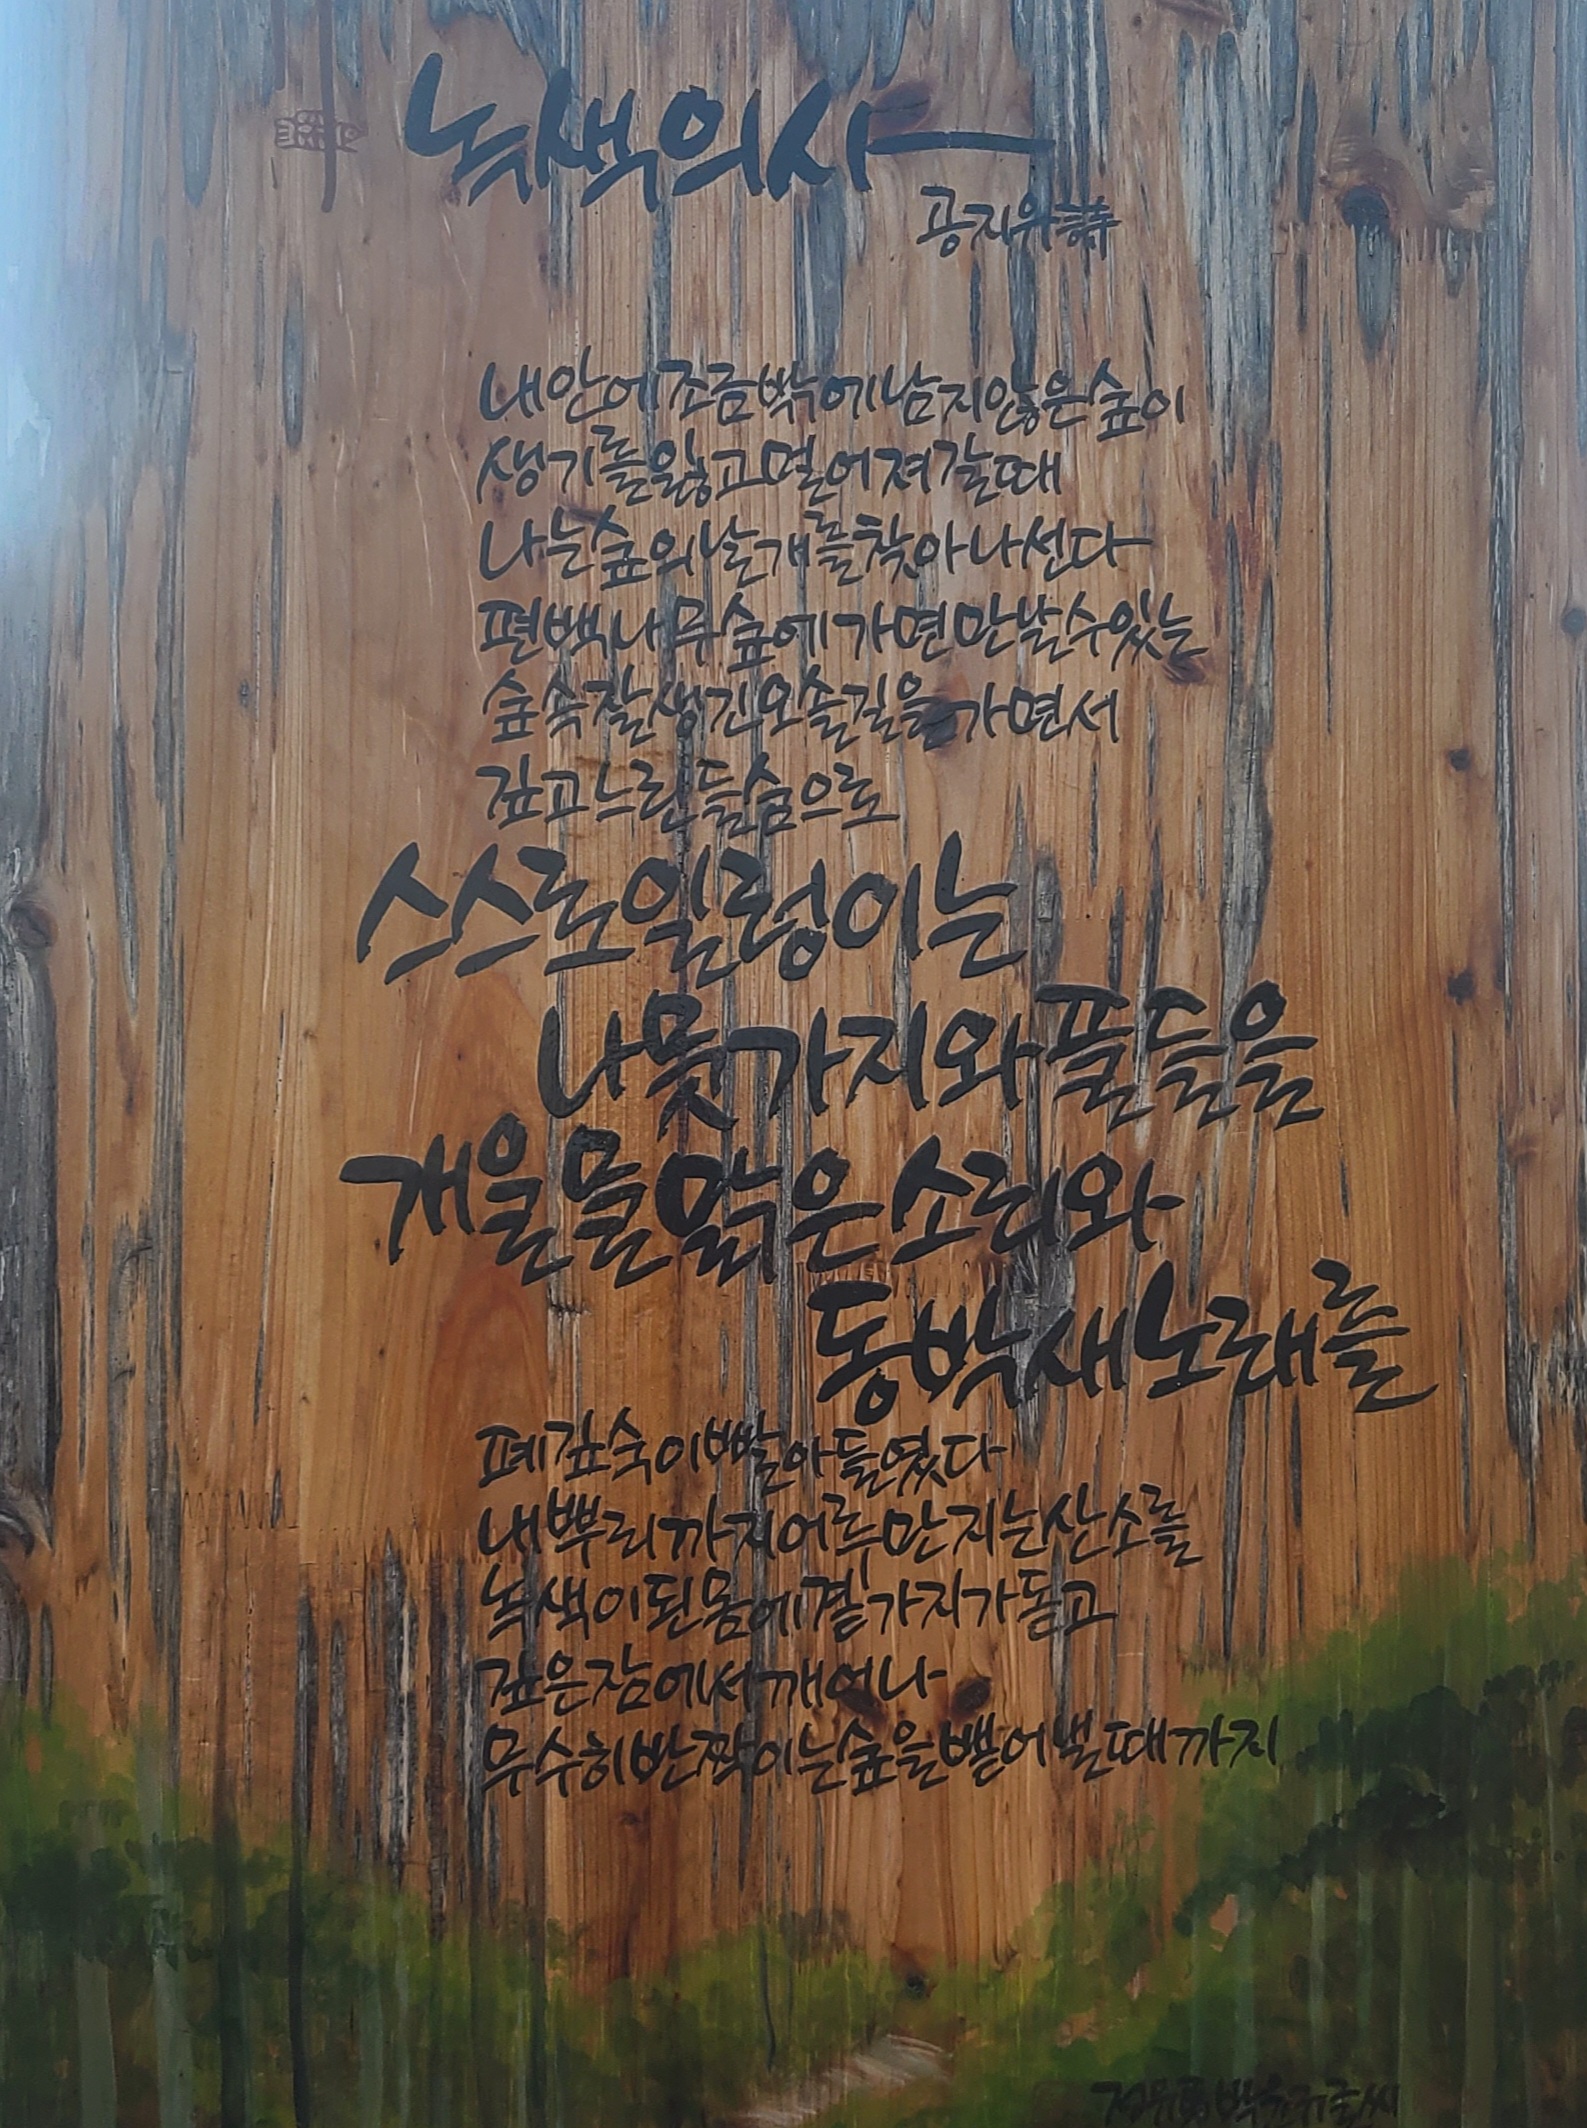 녹색의사
공지유詩
내안에조금밖에남지않은숲이
생기를잃고멀어져갈때
나는숲의날개를찾아나선다
편백나무숲에가면만날수있는
숲속잘생긴오솔길을가면서
깊고느린들숨으로
스스로일렁이는
나뭇가지와풀들을
개울물맑은소리와
동박새노래를
폐깊숙이빨아들였다
내뿌리까지어루만지는산소를
녹색이된몸에곁가지가돋고
깊은잠에서깨어나
무수히반짝이는숲을뱉어낼때까지